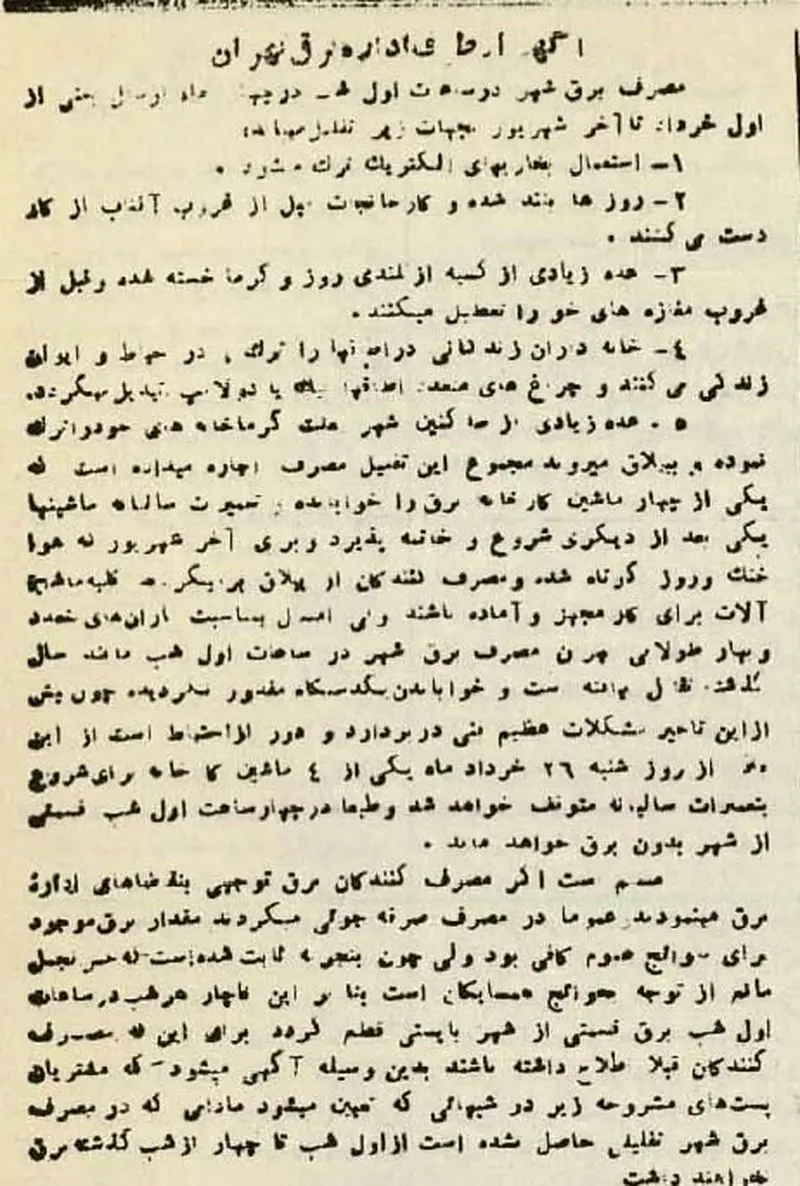 آگهی از طرف اداره برق تهران
مصرف برق شهر در ساعات اول شب در چهار ماه از سال یعنی از
اول خرداد تا آخر شهریور بجهات زیر تقلیل مییابد
۱- استعمال بخاریهای الکتریک ترک میشود .
۲- روز ها بلند شده و کارخانجات قبل از غروب آفتاب از کار
دست می کشند .
۳- عده زیادی از کسبه از بلندی روز و گرما خسته شده و قبل از
غروب مغازه های خو را تعطیل میکنند .
٤- خانه داران زندگانی در اطاقها را ترک و در حیاط و ایوان
زندگی می کنند و چراغ های متعدد اطاقها بیک یا دو لامپ تبدیل میگردد.
۵ - عده زیادی از ساکنین شهر بعلت گرما خانه های خود را ترک
نموده و به ییلاق میروند مجموع این تقلیل مصرف اجازه میداده است که
یکی از چهار ماشین کارخانه برق را خوابانده و تعمیرات سالیانه ماشینها
یکی بعد از دیگری شروع و خاتمه پذیرد و برای آخر شهریور که هوا
خنک و روز کوتاه شده و مصرف کنندگان از ییلاق بر میگردند کلیه ماشین
آلات برای کار مجهز و آماده باشند ولی امسال بمناسبت بارانهای متعدد
و بهار طولانی چون مصرف برق شهر در ساعات اول شب مانند سال
گذشته تقلیل نیافته است و خواباندن یکدستگاه مقدور نگردیده چون بیش
از این تاخیر مشکلات عظیم فنی در بردارد و دور از احتیاط است از این
رو از روز شنبه ۲٦ خرداد ماه یکی از ٤ ماشین کارخانه برای شروع
بتعمیرات سالیانه متوقف خواهد شد و طبعا در چهار ساعت اول شب قسمتی
از شهر بدون برق خواهد ماند .
مسلم است اگر مصرف کنندگان برق توجهی بتقاضاهای اداره
برق مینمودند و عموما در مصرف صرفه جوئی میکردند مقدار برق موجود
برای حوائج عموم کافی بود ولی چون بتجربه ثابت شده است که حس تجمل
مانع از توجه بحوائج همسایگان است بنا بر این ناچار هر شب در ساعات
اول شب برق قسمتی از شهر بایستی قطع گردد برای این که مصرف
کنندگان قبلا اطلاع داشته باشند بدین وسیله آگهی میشود که مشتریان
پست های مشروحه زیر در شبهائی که تعیین میشود مادامی که در مصرف
برق شهر تقلیلی حاصل نشده است از اول شب تا چهار از شب گذشته برق
نخواهند داشت